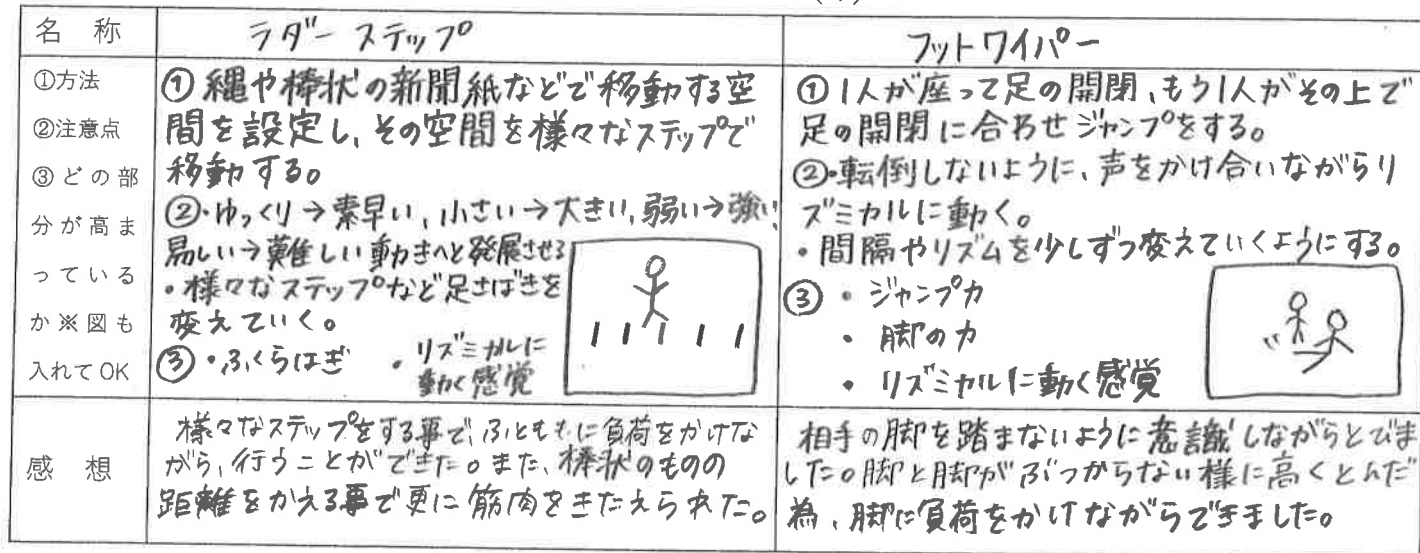 名 称
ラダーステップ
フットワイパー
①方法
②注意点
③どの部
分が高ま
っている
か※図も
入れてOK
①縄や棒状の新聞紙などで移動する空
間を設定し、その空間を様々なステップで
移動する。
②・ゆっくり→素早い,小さい→大きい,弱い→強い,
易しい→難しい動きへと発展させる
・様々なステップなど足さばきを
変えていく。
③・ふくらはぎ
・リズミカルに
動く感覚
①1人が座って足の開閉、もう1人がその上で
足の開閉に合わせジャンプをする。
②・転倒しないように、声をかけ合いながらリ
ズミカルに動く。
・間隔やリズムを少しずつ変えていくようにする。
③・ジャンプ力
・脚の力
・リズミカルに動く感覚
感 想
様々なステップをする事で、ふとももに負荷をかけな
がら、行うことができた。また、棒状のものの
距離をかえる事で更に筋肉をきたえられた。
相手の脚を踏まないように意識しながらとびま
した。脚と脚がぶつからない様に高くとんだ
為、脚に負荷をかけながらできました。